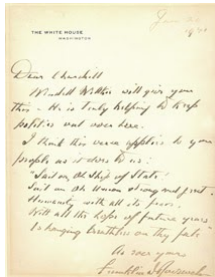 THE WHITE HOUSE
WASHINGTON
Dear Churchill
Wendell Willkie will give you
this - He is truly helping to keep
politics out over here.
I think this verse applies to your
people as it does to us:
"Sail on, Oh Ship of State!
Sail on Oh Union strong and great.
Humanity with all its fears
With all the hope of future years
Is hanging breathless on thy fate"
As ever yours
Franklin D. Roosevelt